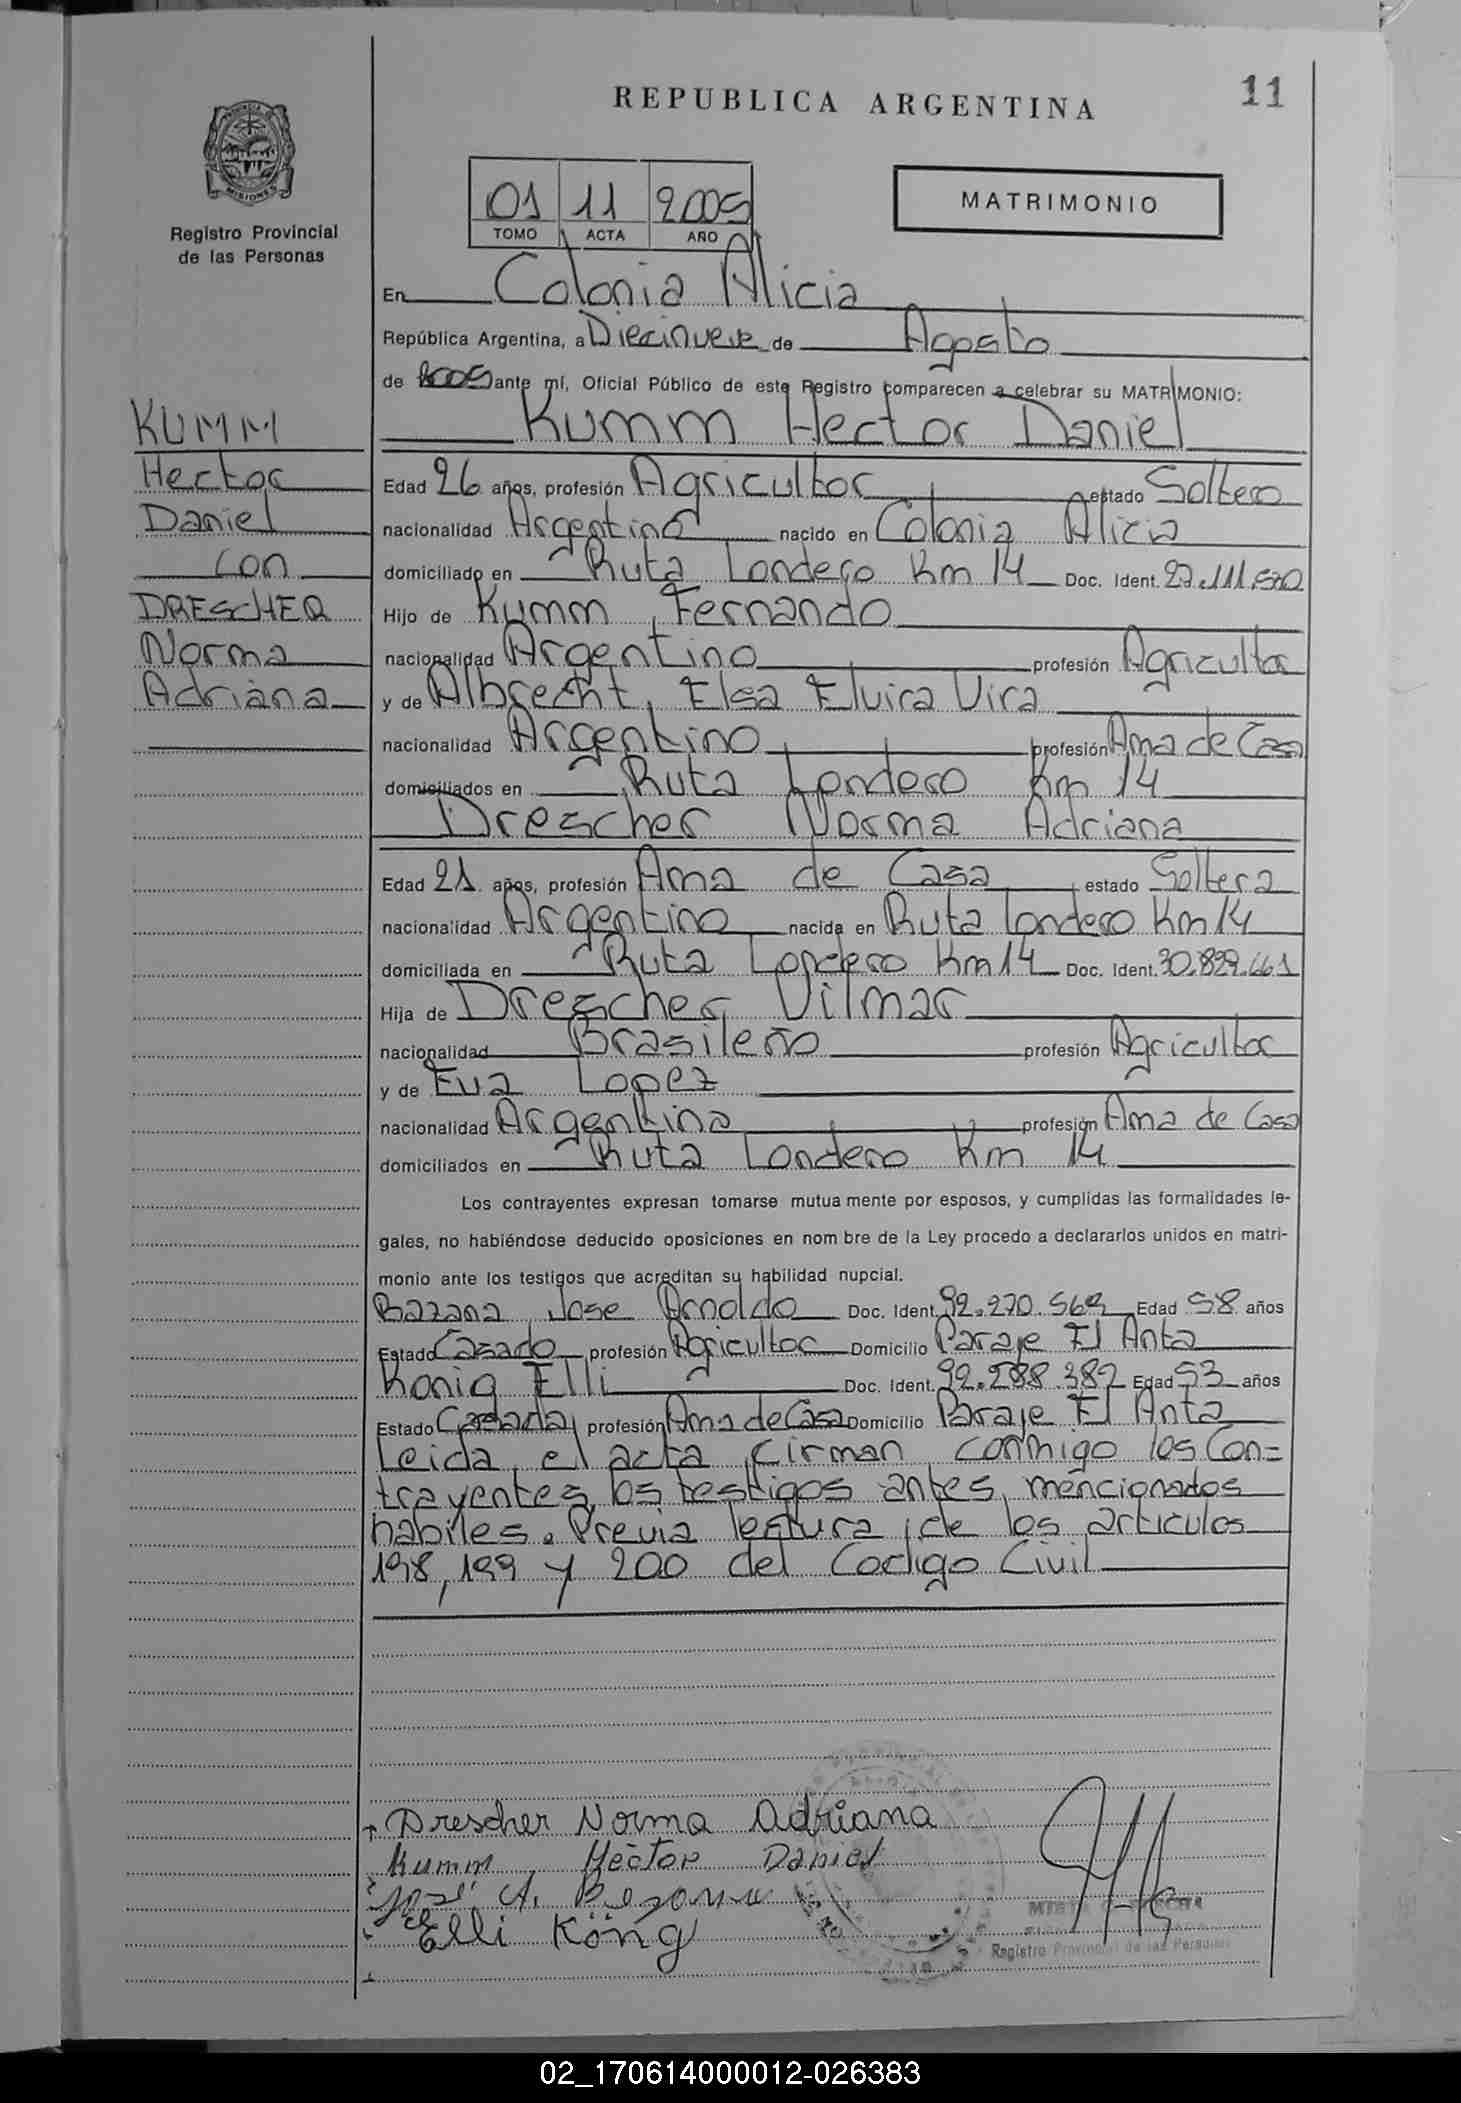 REPUBLICA ARGENTINA
11
PROVINCIA
MISIONES
Registro Provincial
de las Personas
01 11 2005
TOMO ACTA AÑO
MATRIMONIO
En Colonia Alicia
República Argentina, a Diecinueve de Agosto
de 2005 ante mí, Oficial Público de este Registro comparecen a celebrar su MATRIMONIO:
KUMM
Hector
Daniel
con
DRESCHER
Norma
Adriana
Kumm Hector Daniel
Edad 26 años, profesión Agricultor estado Soltero
nacionalidad Argentino nacido en Colonia Alicia
domiciliado en Ruta Londero Km 14 Doc. Ident.
Hijo de Kumm, Fernando
nacionalidad Argentino profesión Agricultor
y de Albrecht, Elsa Elvira Vira
nacionalidad Argentino profesión Ama de Casa
domiciliados en Ruta Londero Km 14
Drescher Norma Adriana
Edad 21 años, profesión Ama de Casa estado Soltera
nacionalidad Argentino nacida en Ruta Londero Km 14
domiciliada en Ruta Londero Km 14 Doc. Ident. 30.829.661
Hija de Drescher, Vilmar
nacionalidad Brasileño profesión Agricultor
y de Eva Lopez
nacionalidad Argentina profesión Ama de Casa
domiciliados en Ruta Londero Km 14
Los contrayentes expresan tomarse mutua mente por esposos, y cumplidas las formalidades le-
gales, no habiéndose deducido oposiciones en nom bre de la Ley procedo a declararlos unidos en matri-
monio ante los testigos que acreditan su habilidad nupcial.
Bazana, Jose Arnoldo Doc. Ident. 92.270.569 Edad 58 años
Estado Casado profesión Agricultor Domicilio Paraje El Anta
Konig Elli Doc. Ident. 92.288.389 Edad 53 años
Estado Casada profesión Ama de Casa Domicilio Paraje El Anta
Leida el acta, firman conmigo los Con=
trayentes, los testigos antes mencionados
habiles. Previa lectura de los articulos
198, 199 y 200 del Codigo Civil
Drescher Norma Adriana
Kumm, Hector Daniel
José A.
Elli Köng
Registro Provincial de las Personas
02_170614000012-026383